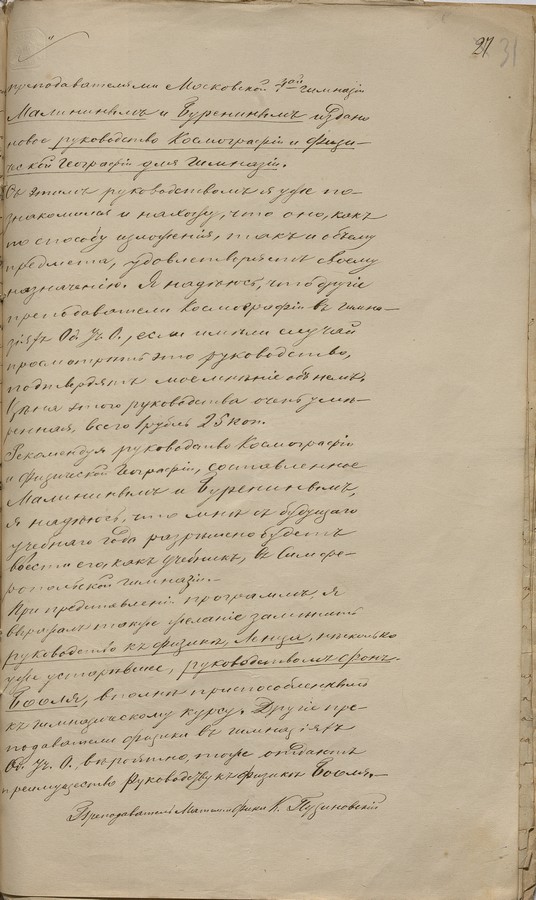 27 31
преподавателями Московской 4ой гимназіи
Малининымъ и Буренинымъ издано
новое руководство Космографіи и Физи-
ческой Географіи для Гимназій.
Съ этимъ руководствомъ я уже по-
знакомился и нахожу, что оно, какъ
по способу изложенія, такъ и объему
предмета, удовлетворяетъ своему
назначенію. Я надѣюсь, что другіе
преподаватели Космографіи въ гимна-
зіяхъ Од. Уч. О., если имѣли случай
просмотрѣть это руководство,
подтвердятъ мое мнѣніе объ немъ.
Цѣна этого руководства очень умѣ-
ренная, всего 1 рубль 25 коп.
Рекомендуя руководство Космографіи
и Физической Географіи, составленное
Малининымъ и Буренинымъ,
я надѣюсь, что мнѣ съ будущаго
учебнаго года разрѣшено будетъ
ввести его, какъ учебникъ, въ Симфе-
ропольской гимназіи.
При представленіи программъ, я
выразилъ также желаніе замѣнить
руководство къ физикѣ, Ленца, нѣсколько
уже устарѣвшее, руководствомъ фонъ-
Бооля, вполнѣ приспособленнымъ
къ гимназическому курсу. Другіе пре-
подаватели физики въ гимназіяхъ
Од. Уч. О., вѣроятно, тоже отдаютъ
преимущество Руководству къ физикѣ Бооля.
Преподаватель Матем. и Физики К.